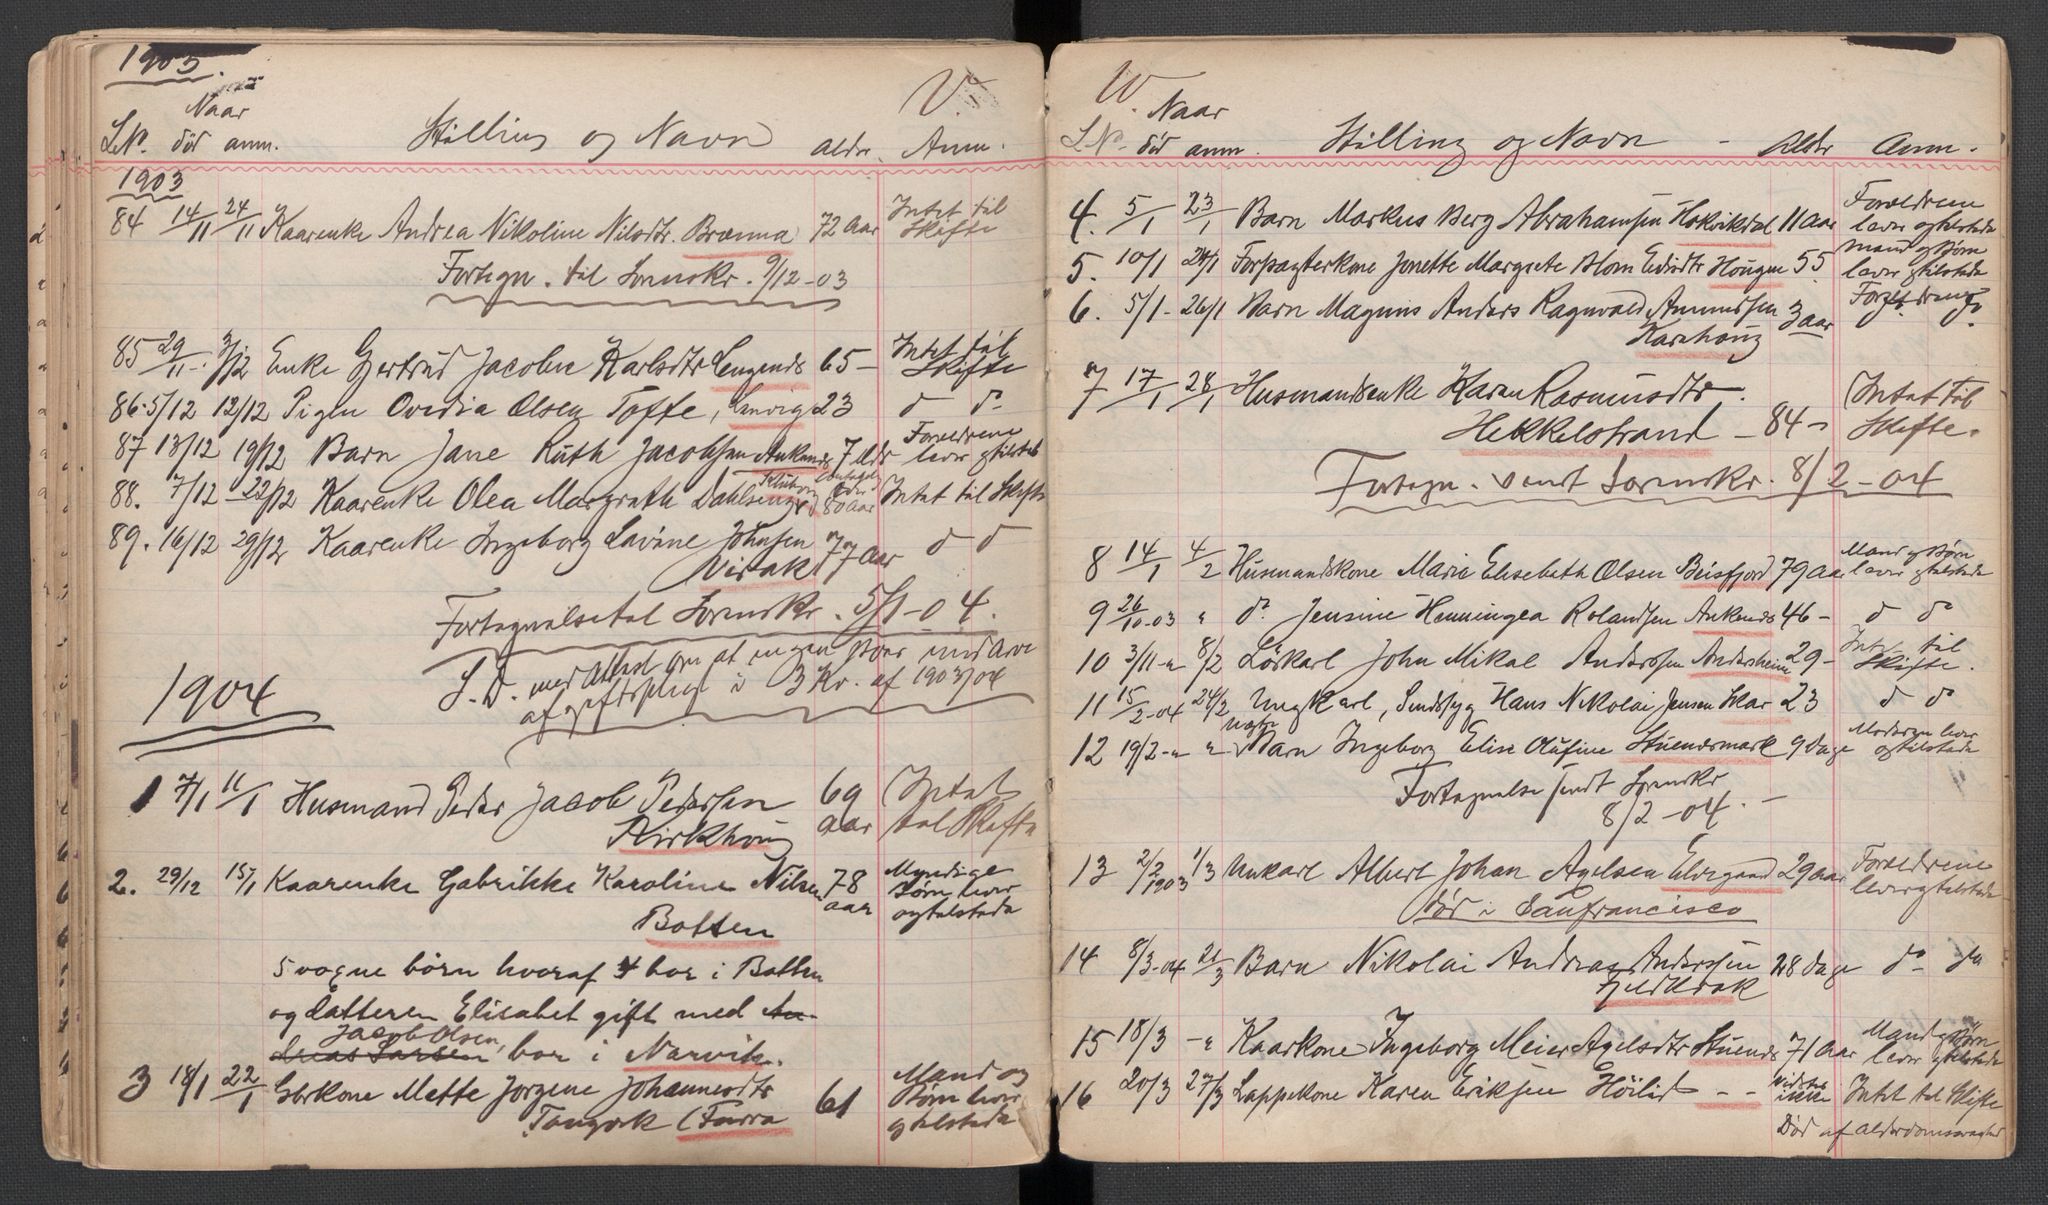 1903.
V
Naar
LNo. död anm. Stilling og Navn aldr. Anm.
1903
84 14/11 24/11 Kaarenke Andrea Nikoline Nilsdtr. Brænna 72 Aar Intet til Skifte
Fortegn. til Sorenskr. 9/12-03
85 29/11 3/12 Enke Gjertrud Jacobine Karlsdtr Lengends 65 – Intet til Skifte
86. 5/12 12/12 Pigen Ovedia Olsen Tofte, Lenvig 23 d do
87 13/12 19/12 Barn Jane Ruth Jacobsen Ankenes 7 Forældrene lever og tilstede
88. 7/12 22/12 Kaarenke Olea Margrath Dahlsen 80 aar Intet til Skifte
89. 16/12 29/12 Kaarenke Ingeborg Lavine Johnsen 77 Aar d d
Virak
Fortegnelse til Sorenskr. 5/1-04.
S. D. med Attest om at ingen svar ind Arve
afgiftspligt i 3 Kr. af 1903/04
1904
1 7/1 11/1 Husmand Peder Jacob Pedersen 69 aar Intet til Skifte
Kirkhoug
2. 29/12 15/1 Kaarenke Gabrikke Karoline Nilsen 78 aar Myndige Børn lever og tilstede
Botten
5 vogne børn hvoraf 4 bor i Botten
og datteren Elisabet gift med An-
Jacob Olsen,
dreas Larsen, bor i Narvik.
3 18/1 22/1 Gbrkone Mette Jorgene Johannesdtr 61 Mand og Børn lever og tilstede
Tangvik (Furra
W.
Naar
LNo. död anm. Stilling og Navn – Aldr Anm.
4. 5/1 23/1 Barn Markus Berg Abrahamsen Hokvikdal 11 Aar Forældrene lever og tilstede
5. 10/1 24/1 Forpagterkone Jonette Margrete Blom Eidisdtr Hougen 55 Mand og Børn lever og tilstede
6. 5/1 – 26/1 Barn Magnus Anders Ragnvald Amundsen 3 aar Forældrene
Karihoug
7 17/1 28/1 Husmandsenke Karen Rasmusdtr.
Hekkelstrand – 84 – Intet til Skifte.
Fortegn. sendt Sorenskr. 8/2-04
8 14/1 4/2 Husmandskone Marie Elisebeth Olsen Beisfjord 79 Aar Mand og Børn lever og tilstede
9 26/10-03 " do Jensine Henningea Rolandsen Ankenes 46 – d do
10 3/11-" 8/2 Löskarl John Mikal Anderssen Andersheim 29 – Intet til Skifte.
11 15/2-04 24/2 Ungkarl, Sindssyg Hans Nikolai Jensen Skar 23 d do
12 19/2-" " Uægte Barn Ingeborg Elise Olufine Stuenesmark 9 dage Moderen lever og tilstede
Fortegnelse sendt Sorenskr
8/2-04. –
13 2/2 1903 1/3 Unkarl Albert Johan Axelsen Elvegaard 29 aar Forældrene lever og tilstede
död i Sanfrancisco
14 8/3-04 21/3 Barn Nikolai Andreas Anderssen 28 dage do do
Fjeldkrok
15 18/3 – " Kaarkone Ingeborg Meier Axelsdtr Stuenes 71 Aar Mand og Børn lever og tilstede
16 20/3 27/3 Lappekone Karen Eriksen Höilid – – Vidstes ikke Intet til Skifte
Död af Alderdomssvaghed